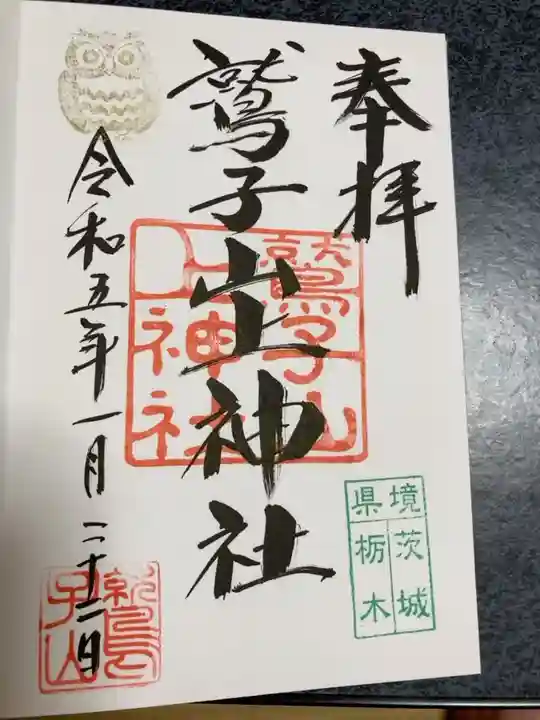 奉拝
鷲子山上神社
令和五年一月二十二日
鷲子山
上神社
境 茨城
県 栃木
鷲
子山